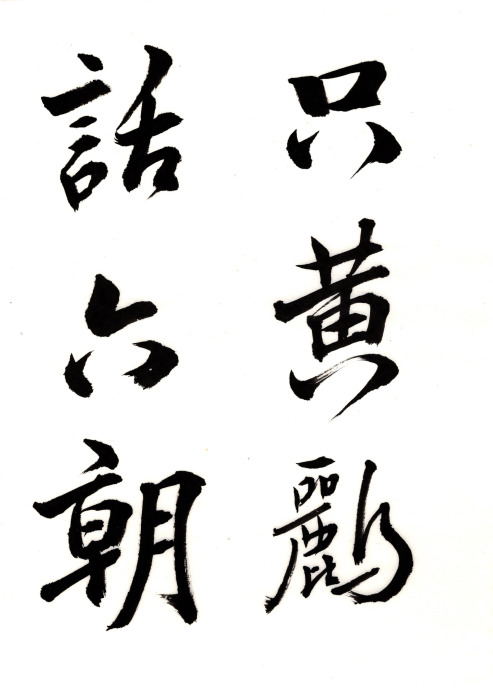 只黄鸝
話六朝